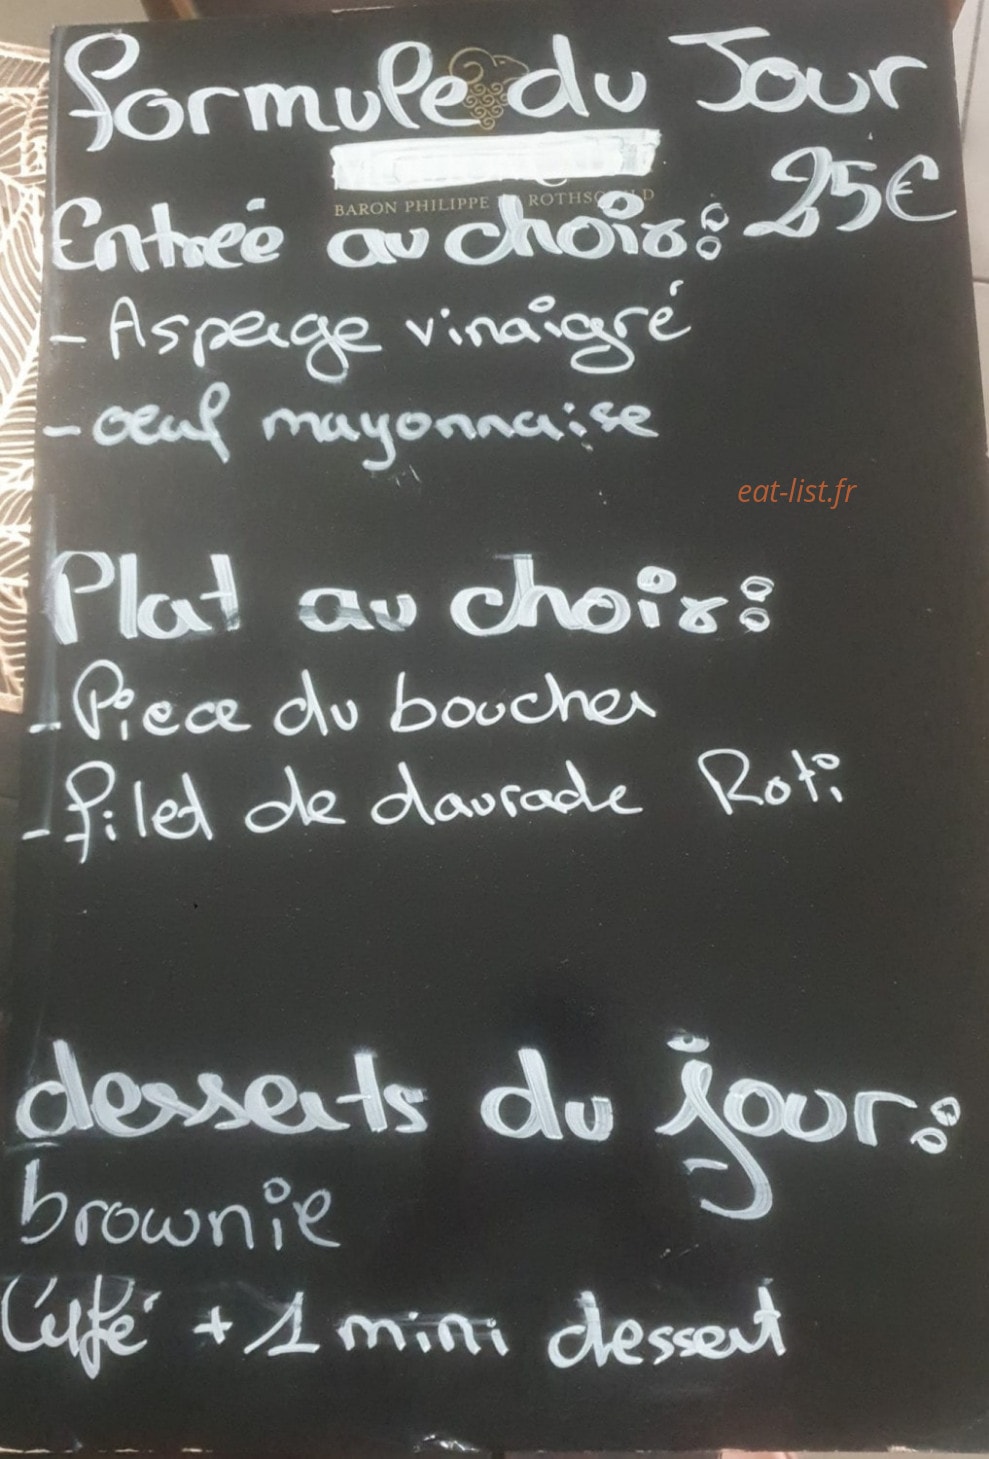 formule du Jour
BARON PHILIPPE ROTHSCHILD
25€
Entrée au choix:
- Asperge vinaigré
- oeuf mayonnaise
eat-list.fr
Plat au choix:
- Piece du boucher
- filet de daurade Roti
desserts du jour:
brownie
Café + 1 mini dessert